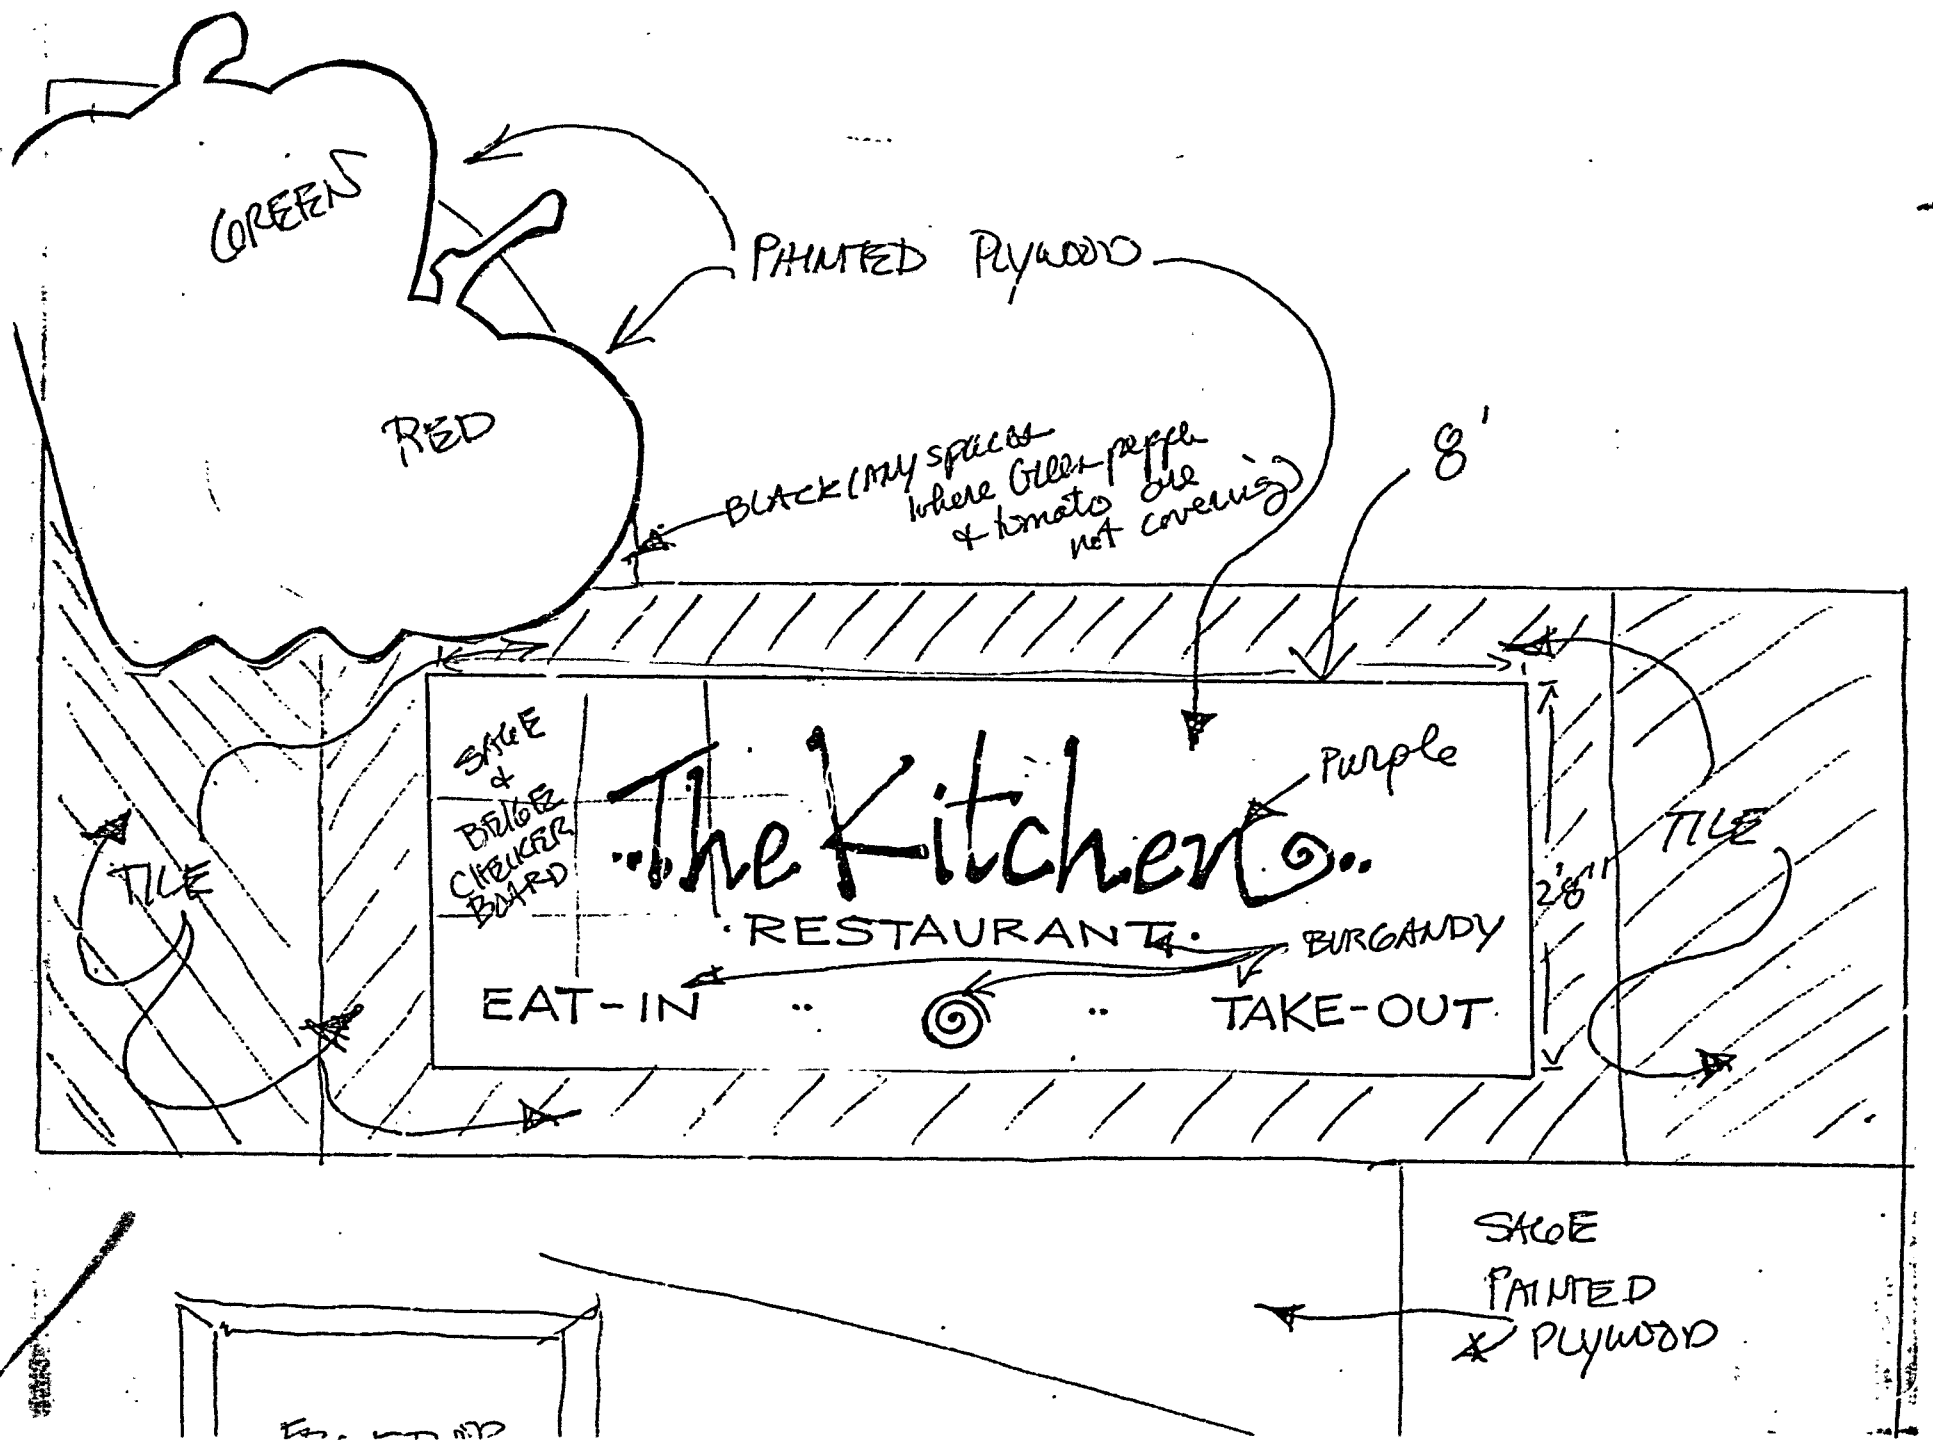 GREEN
PAINTED PLYWOOD
RED
8'
BLACK (ANY spaces
where Green pepper
& tomato are
not covering)
SAGE
&
BEIGE
CHECKER
BOARD
The Kitchen
Purple
TILE
TILE
2'8"
RESTAURANT
BURGANDY
EAT-IN
TAKE-OUT
SAGE
PAINTED
PLYWOOD